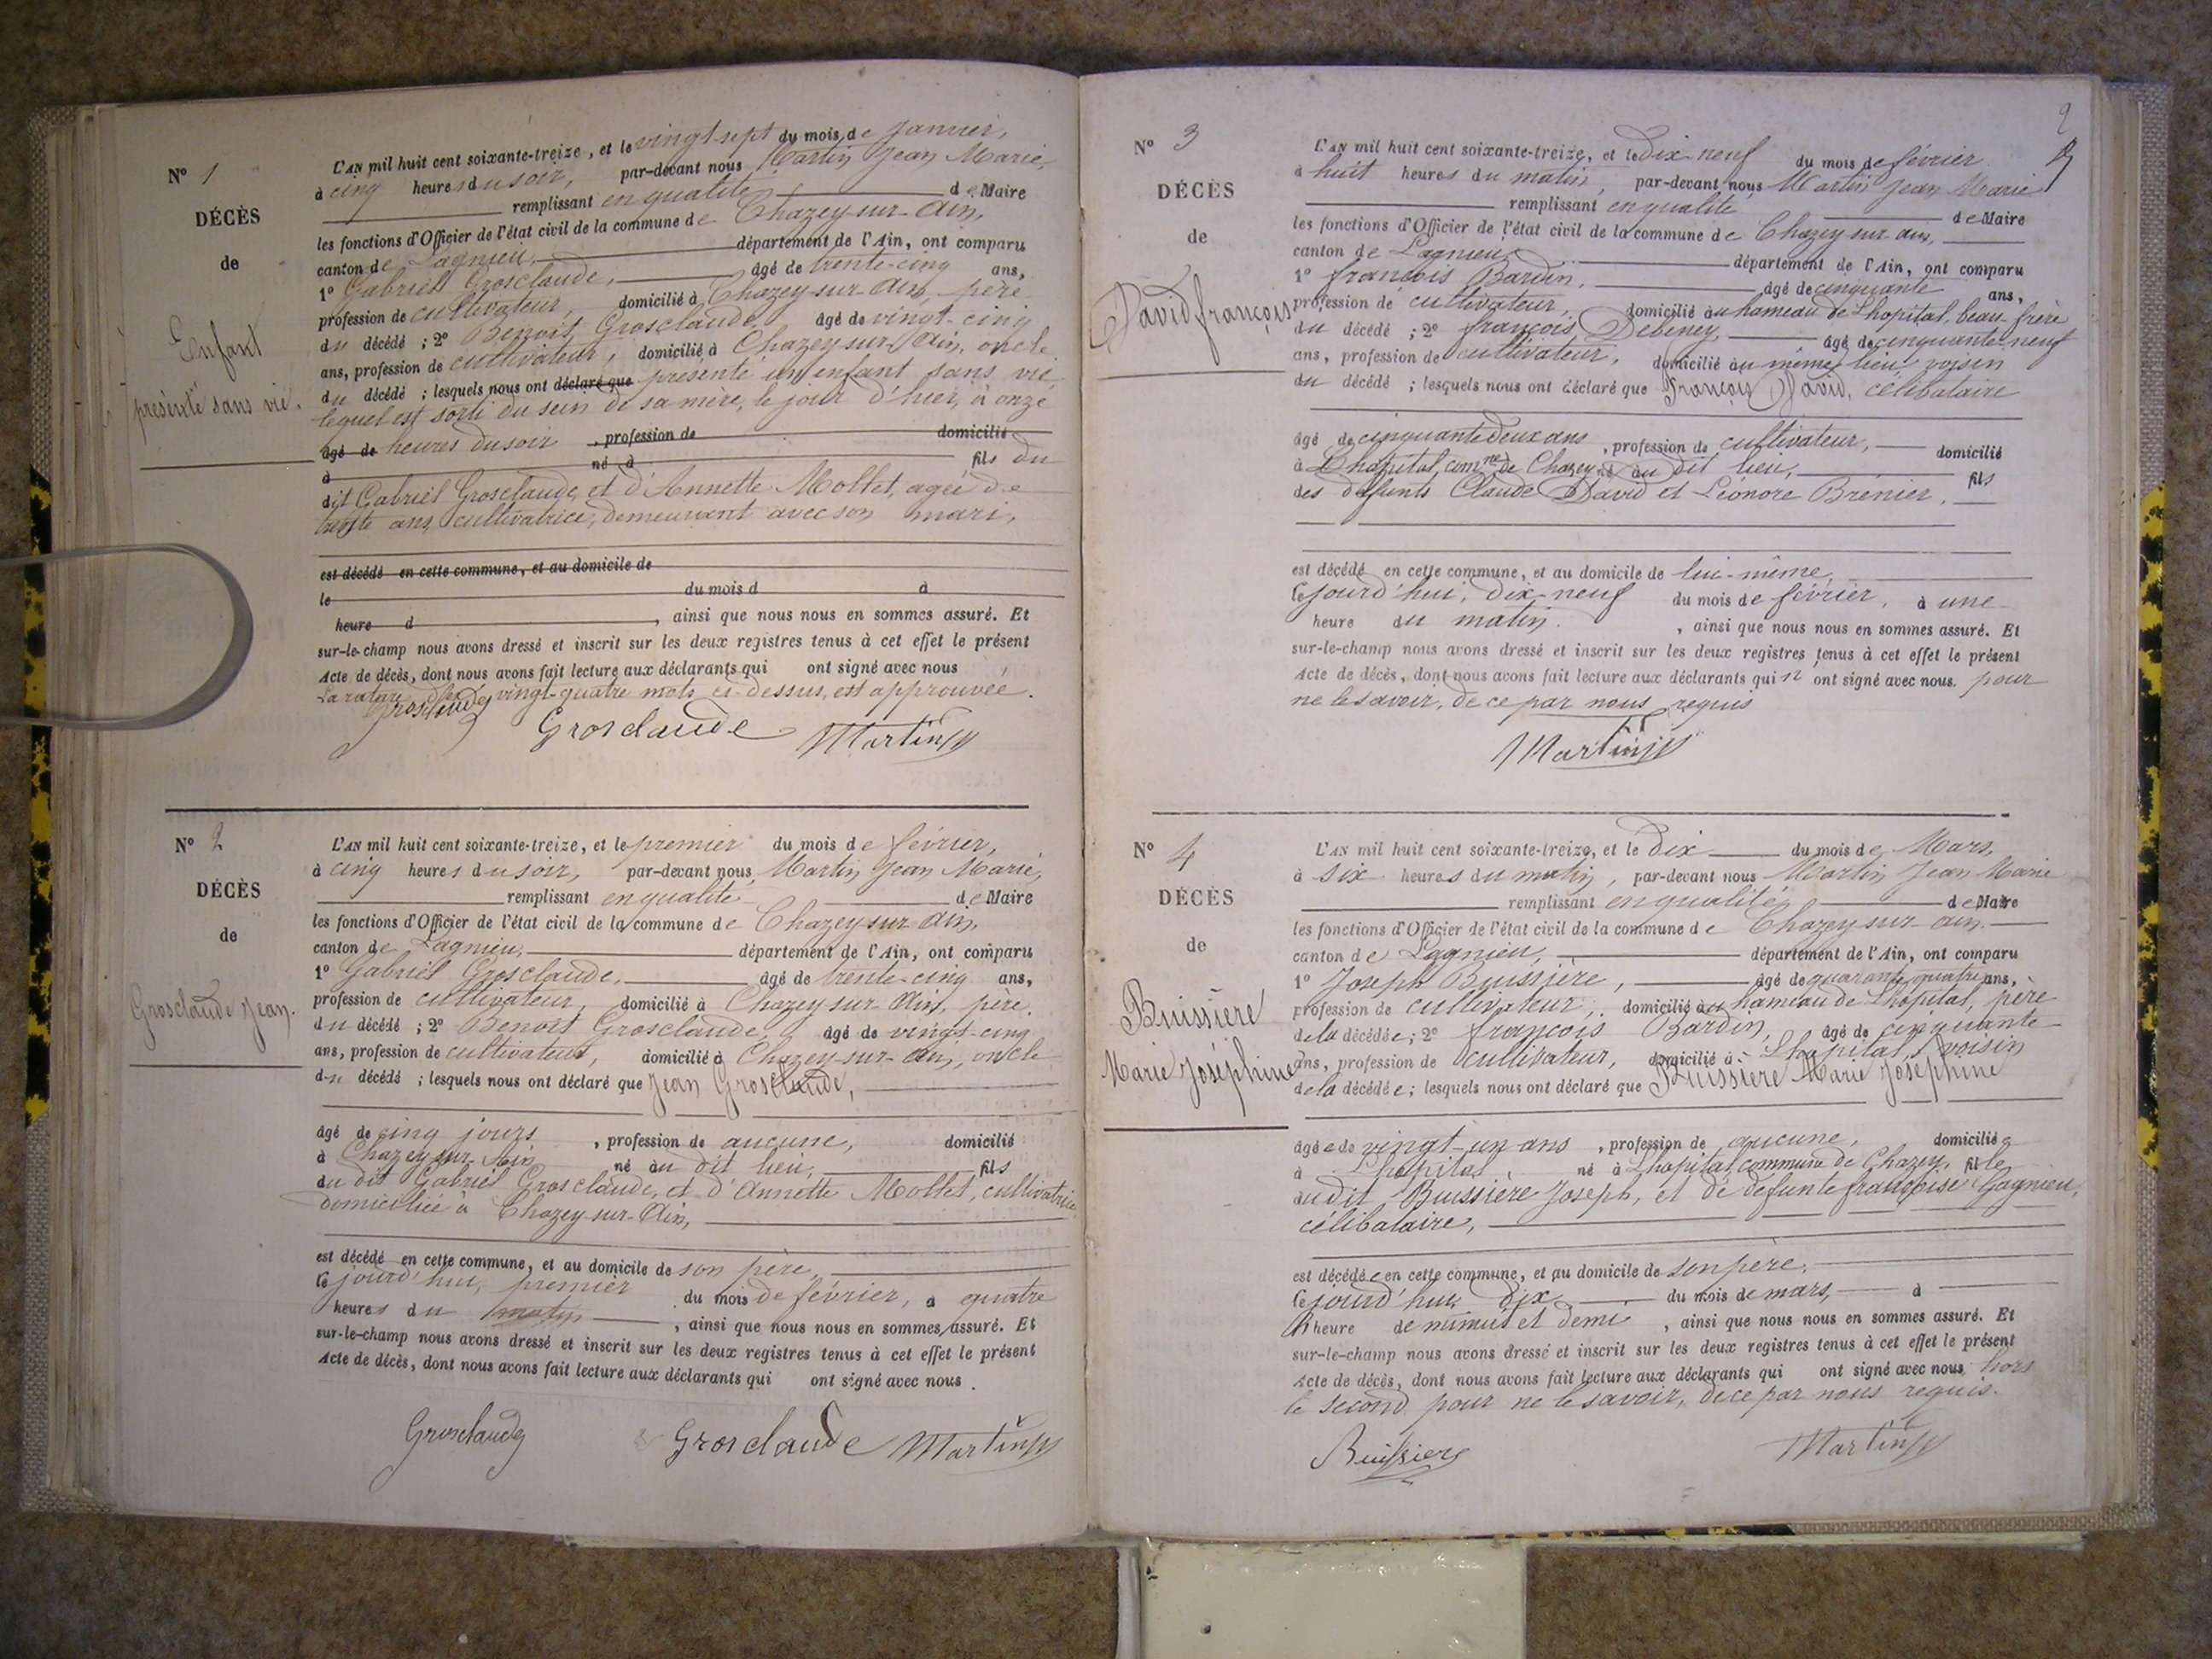 N° 1
DÉCÈS
de
Enfant
présenté sans vie.
L'AN mil huit cent soixante-treize, et le vingt-sept du mois de Janvier,
à cinq heures du soir, par-devant nous Martin Jean Marie,
remplissant en qualité de Maire
les fonctions d'Officier de l'état civil de la commune de Chazey-sur-Ain,
canton de Lagnieu, département de l'Ain, ont comparu
1° Gabriel Grosclaude, âgé de trente-cinq ans,
profession de cultivateur, domicilié à Chazey-sur-Ain, père
du décédé ; 2° Benoit Grosclaude, âgé de vingt-cinq
ans, profession de cultivateur, domicilié à Chazey-sur-Ain, oncle
du décédé ; lesquels nous ont déclaré que présenté un enfant sans vie,
lequel est sorti du sein de sa mère, le jour d'hier, à onze
âgé de heures du soir , profession de domicilié
à né à fils du
dit Gabriel Grosclaude, et d'Annette Mollet, agée de
trente ans, cultivatrice, demeurant avec son mari,
est décédé en cette commune, et au domicile de
le du mois d à
heure d , ainsi que nous nous en sommes assuré. Et
sur-le-champ nous avons dressé et inscrit sur les deux registres tenus à cet effet le présent
Acte de décès, dont nous avons fait lecture aux déclarants qui ont signé avec nous,
La rature des vingt-quatre mots ci-dessus, est approuvée.
Grosclaude Grosclaude Martin
N° 2
DÉCÈS
de
Grosclaude Jean.
L'AN mil huit cent soixante-treize, et le premier du mois de février,
à cinq heures du soir, par-devant nous Martin Jean Marie,
remplissant en qualité de Maire
les fonctions d'Officier de l'état civil de la commune de Chazey-sur-Ain,
canton de Lagnieu, département de l'Ain, ont comparu
1° Gabriel Grosclaude, âgé de trente-cinq ans,
profession de cultivateur, domicilié à Chazey-sur-Ain, père
du décédé ; 2° Benoit Grosclaude, âgé de vingt-cinq
ans, profession de cultivateur, domicilié à Chazey-sur-Ain, oncle
du décédé ; lesquels nous ont déclaré que Jean Grosclaude,
âgé de cinq jours , profession de aucune, domicilié
à Chazey-sur-Ain né au dit lieu, fils
du dit Gabriel Grosclaude, et d'Annette Mollet, cultivatrice
domiciliée à Chazey-sur-Ain,
est décédé en cette commune, et au domicile de son père,
ce jourd'hui, premier du mois de février, à quatre
heures du matin , ainsi que nous nous en sommes assuré. Et
sur-le-champ nous avons dressé et inscrit sur les deux registres tenus à cet effet le présent
Acte de décès, dont nous avons fait lecture aux déclarants qui ont signé avec nous.
Grosclaude Grosclaude Martin
2
N° 3
DÉCÈS
de
David françois
L'AN mil huit cent soixante-treize, et le Dix-neuf du mois de février
à huit heures du matin, par-devant nous Martin Jean Marie
remplissant en qualité de Maire
les fonctions d'Officier de l'état civil de la commune de Chazey-sur-ain,
canton de Lagnieu département de l'Ain, ont comparu
1° françois Bardin, âgé de cinquante ans,
profession de cultivateur, domicilié au hameau de Lhopital, beau-frère
du décédé ; 2° françois Debeney, âgé de cinquante-neuf
ans, profession de cultivateur, domicilié au même lieu, voisin
du décédé ; lesquels nous ont déclaré que François David, célibataire
âgé de cinquante deux ans , profession de cultivateur, domicilié
à Lhopital, comne de Chazey né au dit lieu, fils
des défunts Claude David et Léonore Brénier,
est décédé en cette commune, et au domicile de lui-même,
ce jourd'hui, dix-neuf du mois de février, à une
heure du matin. , ainsi que nous nous en sommes assuré. Et
sur-le-champ nous avons dressé et inscrit sur les deux registres tenus à cet effet le présent
Acte de décès, dont nous avons fait lecture aux déclarants qui n'ont signé avec nous. pour
ne le savoir, de ce par nous requis
Martin
N° 4
DÉCÈS
de
Buissière
Marie Joséphine
L'AN mil huit cent soixante-treize, et le Dix du mois de Mars,
à six heures du matin, par-devant nous Martin Jean Marie
remplissant en qualité de Maire
les fonctions d'Officier de l'état civil de la commune de Chazey-sur-ain.
canton de Lagnieu, département de l'Ain, ont comparu
1° Joseph Buissière, âgé de quarante-quatre ans,
profession de cultivateur, domicilié au hameau de Lhopital, père
de la décédée ; 2° françois Bardin, âgé de cinquante
ans, profession de cultivateur, domicilié à Lhopital, voisin
de la décédée ; lesquels nous ont déclaré que Buissière Marie Joséphine
âgée de vingt-un ans , profession de aucune, domiciliée
à Lhopital, né à Lhopital, commune de Chazey, fille
du dit Buissière Joseph, et de défunte françoise Gagnieu,
célibataire,
est décédée en cette commune, et au domicile de son père,
ce jourd'hui, dix du mois de mars, à
heure de minuit et demi , ainsi que nous nous en sommes assuré. Et
sur-le-champ nous avons dressé et inscrit sur les deux registres tenus à cet effet le présent
Acte de décès, dont nous avons fait lecture aux déclarants qui ont signé avec nous, hors
le second pour ne le savoir, de ce par nous requis.
Buissière Martin